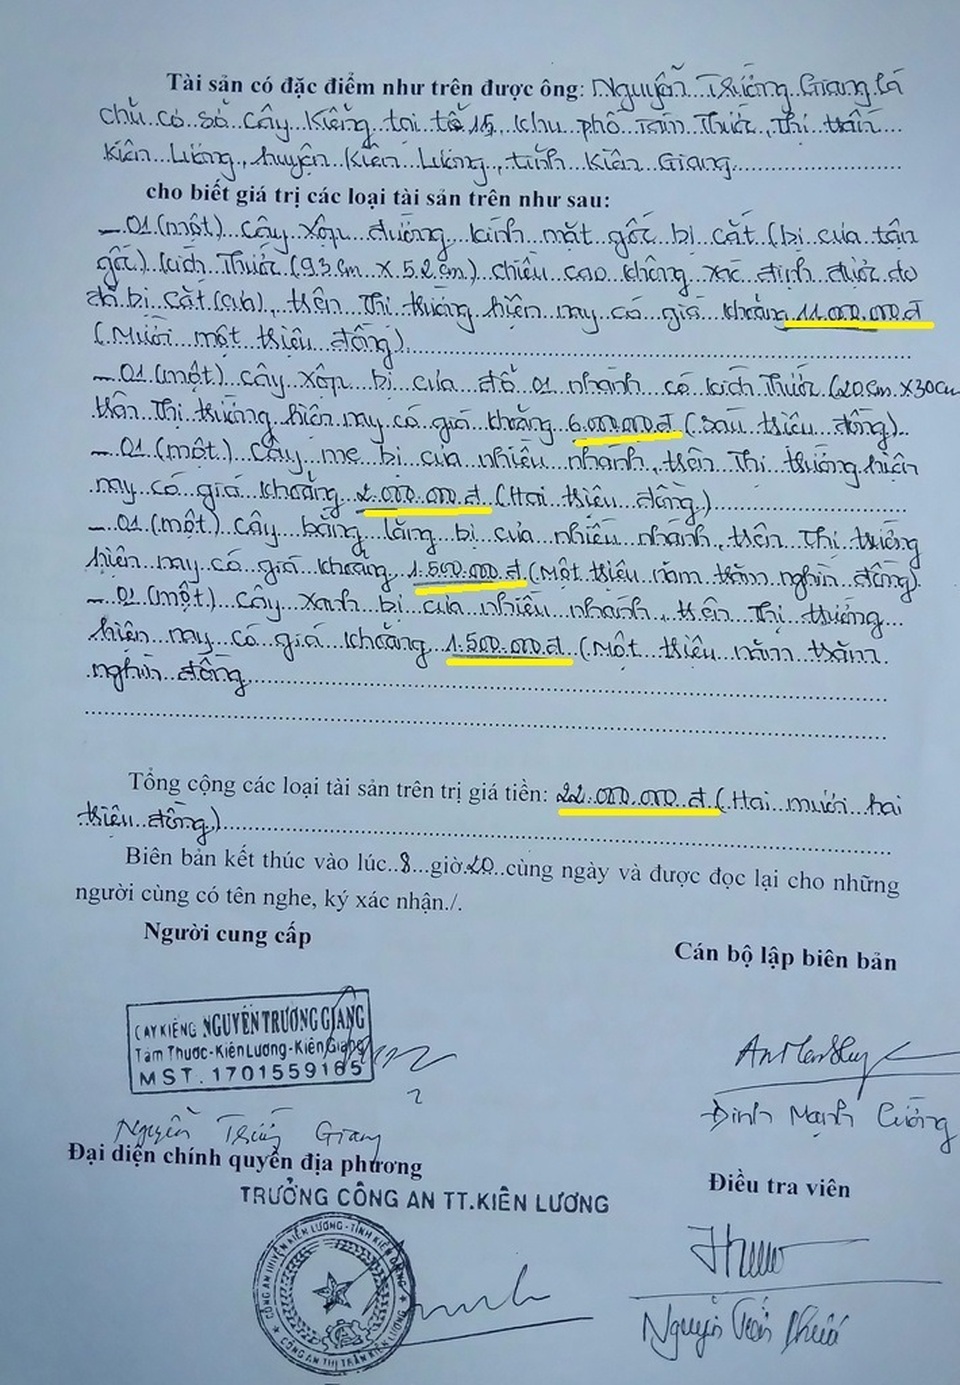 Tài sản có đặc điểm như trên được ông: Nguyễn Trường Giang là
chủ cơ sở cây kiểng tại tổ 15, khu phố Tám Thước, thị trấn
Kiên Lương, huyện Kiên Lương, tỉnh Kiên Giang
cho biết giá trị các loại tài sản trên như sau:
– 01 (một) cây xộp đường kính mặt gốc bị cắt (bị cưa tận
gốc) kích thước (93cm x 52cm) chiều cao không xác định được do
đã bị cắt (cưa), trên thị trường hiện nay có giá khoảng 11.000.000đ
(Mười một triệu đồng)
– 01 (một) cây xộp bị cưa đổ 01 nhánh có kích thước (20cm x 30cm
trên thị trường hiện nay có giá khoảng 6.000.000đ (Sáu triệu đồng)
– 01 (một) cây me bị cưa nhiều nhánh, trên thị trường hiện
nay có giá khoảng 2.000.000đ (Hai triệu đồng)
– 01 (một) cây bằng lăng bị cưa nhiều nhánh, trên thị trường
hiện nay có giá khoảng 1.500.000đ (Một triệu năm trăm nghìn đồng)
– 01 (một) cây xanh bị cưa nhiều nhánh, trên thị trường
hiện nay có giá khoảng 1.500.000đ (Một triệu năm trăm
nghìn đồng
Tổng cộng các loại tài sản trên trị giá tiền: 22.000.000đ (Hai mươi hai
triệu đồng)
Biên bản kết thúc vào lúc 8 giờ 20 cùng ngày và được đọc lại cho những
người cùng có tên nghe, ký xác nhận./.
Người cung cấp
Cán bộ lập biên bản
CÂY KIỂNG NGUYỄN TRƯỜNG GIANG
Tám Thước-Kiên Lương-Kiên Giang
MST. 1701559165
Đinh Mạnh Cường
Nguyễn Trường Giang
Đại diện chính quyền địa phương
Điều tra viên
TRƯỞNG CÔNG AN TT.KIÊN LƯƠNG
CÔNG AN HUYỆN KIÊN LƯƠNG - TỈNH KIÊN GIANG
CÔNG AN THỊ TRẤN KIÊN LƯƠNG
Nguyễn